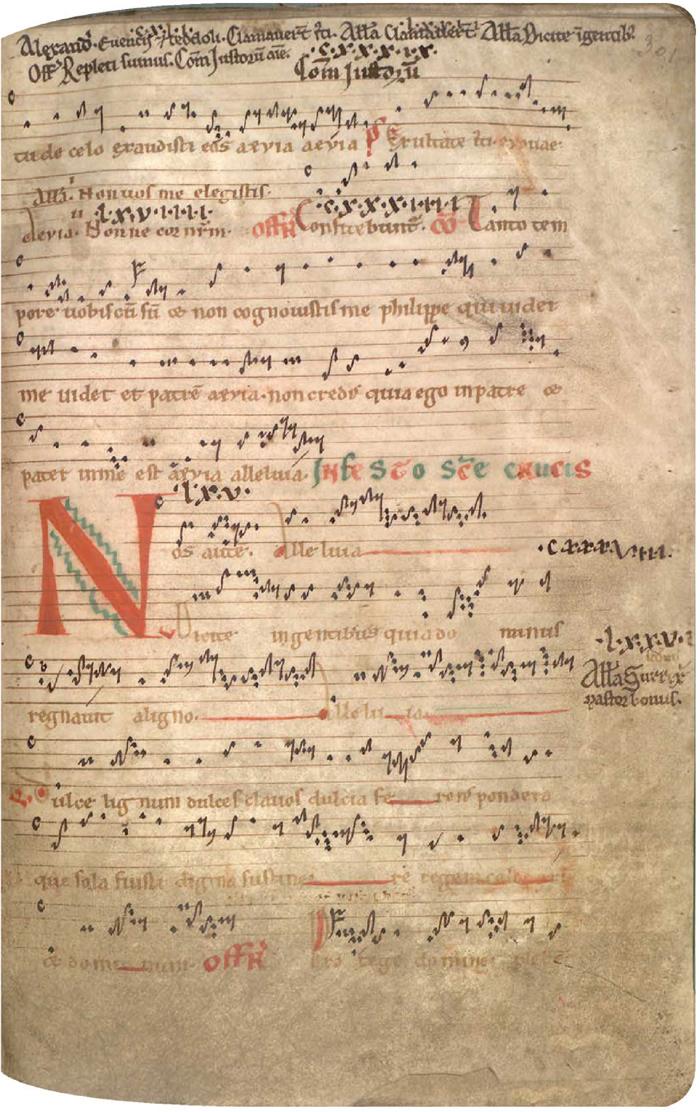 Alexandr. Euencij. Teodoli. Clamauerūt iusti. Alła Clamauerūt. Alła Dicite ingentibꝰ.
Off Repleti sumus. Com̄ Justorū aīe. c.x.x.x.ix.
Com̄ Justorū
tu de celo exaudisti eos aeuia aeuia Ps Exultate iusti
Alła. Non uos me elegistis.
l.x.v.i.i.i.i. c.x.x.x.i.i.i.i.
aleuia. Nonne cor nrm̄. Offr Confitebunt. co Tanto tem
pore uobiscū sū & non cognouistis me philippe qui uidet
me uidet et patrē aeuia. non credis quia ego in patre &
pater in me est aeuia alleluia. In festo sce crucis
l.x.v.
Nos autē. Alleluia
c.x.x.x.v.i.i.i.
Dicite in gentibus quia do minus
l.x.x.v.
Alła Surrex
pastor bonus.
regnauit a ligno. Alleluia
Dulce lignum dulces clauos dulcia fe rens pondera
que sola fuisti digna sustine re regem celorum
& dominum. Offr Protege domine plebē